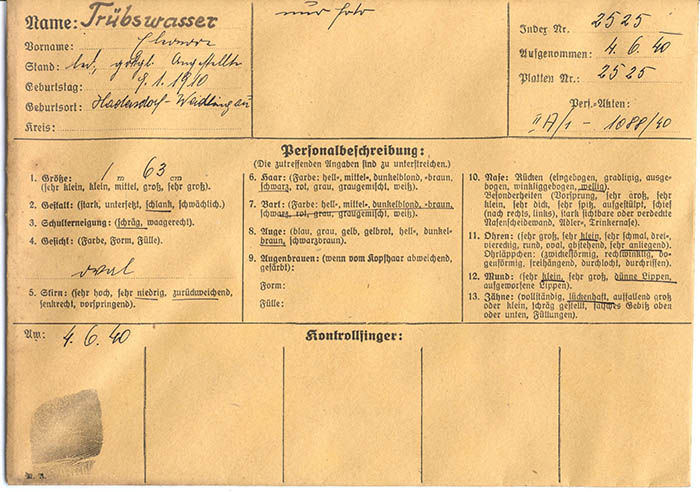 Name: Trübswasser
Vorname: Eleonore
Stand: led., gotgl. Angestellte
Geburtstag: 9.1.1910
Geburtsort: Hadersdorf-Weidlingau
Kreis:
nur Foto
Index Nr. 2525
Aufgenommen: 4.6.40
Platten Nr.: 2525
Pers.-Akten:
II A/1 - 1088/40
Personalbeschreibung:
(Die zutreffenden Angaben sind zu unterstreichen.)
1. Größe: 1 m 63 cm
(sehr klein, klein, mittel, groß, sehr groß).
2. Gestalt: (stark, untersetzt, schlank, schwächlich).
3. Schulterneigung: (schräg, waagerecht).
4. Gesicht: (Farbe, Form, Fülle).
oval
5. Stirn: (sehr hoch, sehr niedrig, zurückweichend,
senkrecht, vorspringend).
6. Haar: (Farbe: hell-, mittel-, dunkelblond, -braun,
schwarz, rot, grau, graugemischt, weiß).
7. Bart: (Farbe: hell-, mittel-, dunkelblond, -braun,
schwarz, rot, grau, graugemischt, weiß).
8. Auge: (blau, grau, gelb, gelbrot, hell-, dunkel-
braun, schwarzbraun).
9. Augenbrauen: (wenn vom Kopfhaar abweichend,
gefärbt):
Form:
Fülle:
10. Nase: Rücken (eingebogen, gradlinig, ausge-
bogen, winkliggebogen, wellig).
Besonderheiten (Vorsprung, sehr groß, sehr
klein, sehr dick, sehr spitz, aufgestülpt, schief
(nach rechts, links), stark sichtbare oder verdeckte
Nasenscheidewand, Adler-, Trinkernase).
11. Ohren: (sehr groß, sehr klein, sehr schmal, drei-,
viereckig, rund, oval, abstehend, sehr anliegend).
Ohrläppchen: (zwickelförmig, rechtwinklig, bo-
genförmig, freihängend, durchlocht, durchrissen).
12. Mund: (sehr klein, sehr groß, dünne Lippen,
aufgeworfene Lippen).
13. Zähne: (vollständig, lückenhaft, auffallend groß
oder klein, schräg gestellt, falsches Gebiß oben
oder unten, Füllungen).
Am: 4.6.40
Kontrollfinger: